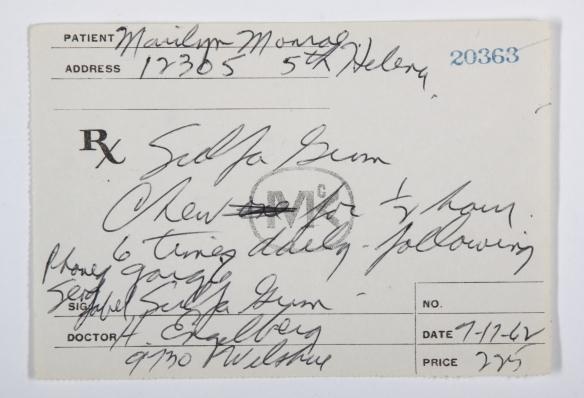 PATIENT Marilyn Monroe
ADDRESS 12305 5th Helena
20363
Rx Sulfa Gum
Chew for 1/2 hour
6 times daily - following
gargle
Phoned
Send
SIG. Label Sulfa Gum -
DOCTOR H. Engelberg
9730 Wilshire
McK
NO.
DATE 7-17-62
PRICE 225